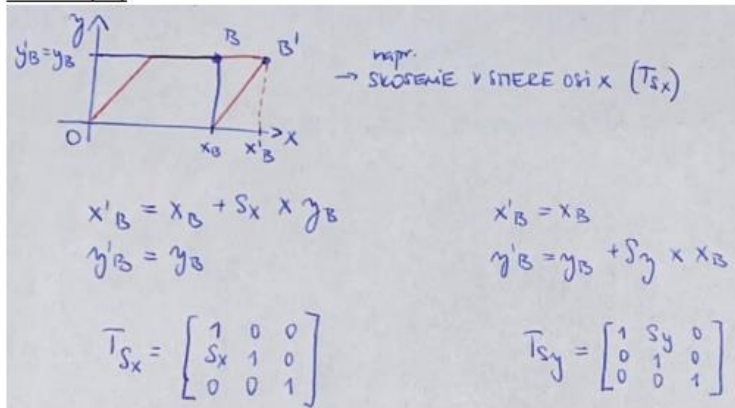 y
y'B = yB
B
B'
O
xB
x'B
x
napr.
→ SKOSENIE V SMERE OSI X (TSx)
x'B = xB + Sx × yB
y'B = yB
TSx = [1 0 0
Sx 1 0
0 0 1]
x'B = xB
y'B = yB + Sy × xB
TSy = [1 Sy 0
0 1 0
0 0 1]